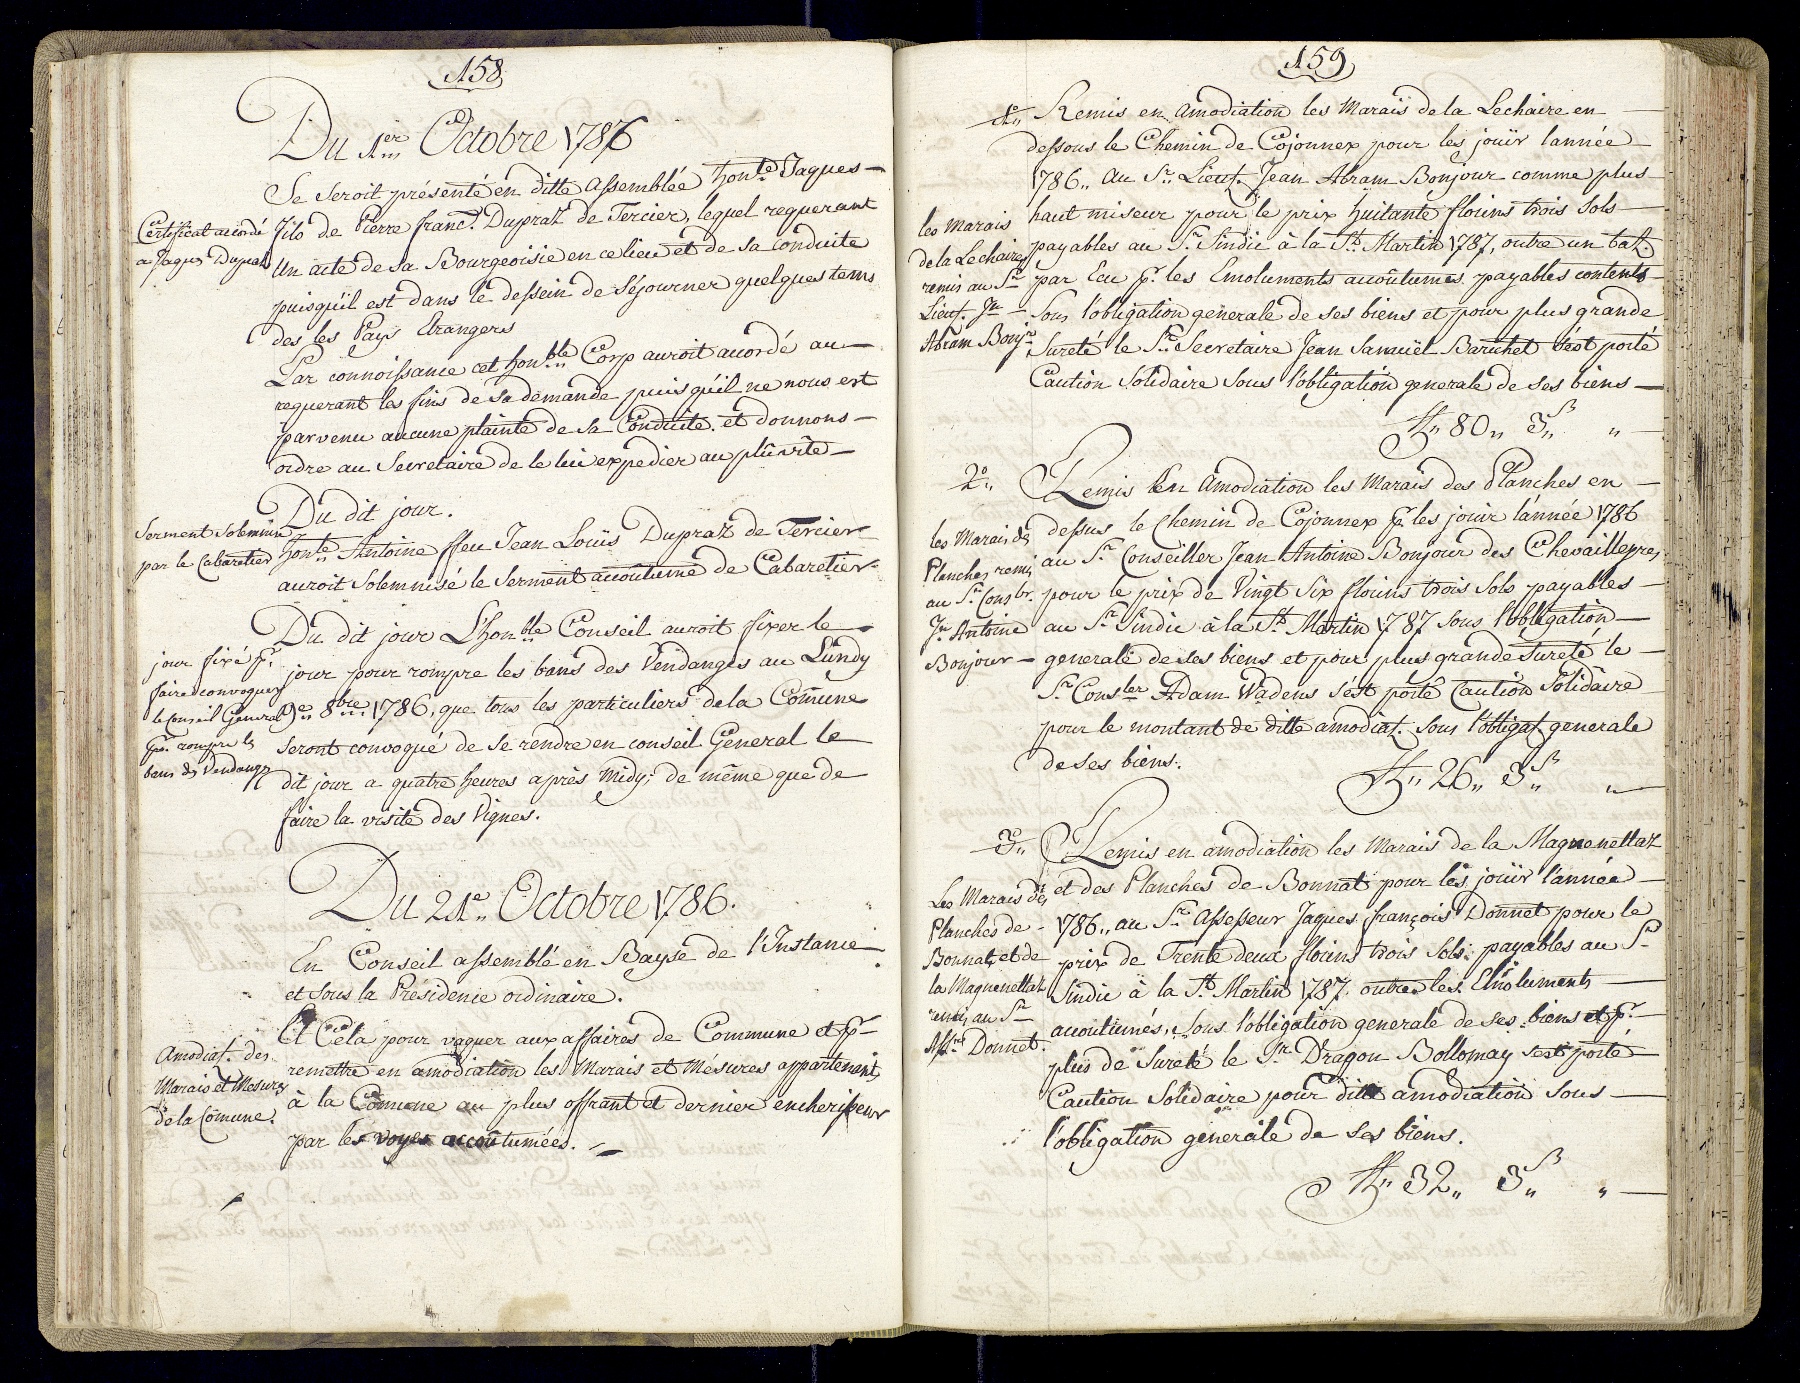 158
Du 1er Octobre 1786
Se Seroit présenté en ditte Assemblée honte. Jaques
Certificat accordé
a Jaques Dupraz
fils de Pierre franç. Dupraz de Tercier, lequel requerant
Un acte de sa Bourgeoisie en ce lieu et de sa conduite
puisqu'il est dans le dessein de Séjourner quelques tems
des les Pays Etrangers
Par connoissance cet honble Corp auroit accordé au
requerant les fins de sa demande puisqu'il ne nous est
parvenu aucune plainte de sa Conduite. et donnons
ordre au Secretaire de le lui expedier au plûvîte
Du dit jour.
Serment Solemnisé
par le Cabaretier
honte. Antoine ffeu Jean Loüis Dupraz de Tercier
auroit Solemnisé le Serment accoûtumé de Cabaretier
Du dit jour L'honble Conseil auroit fixer le
jour fixé pr.
faire convoquer
le Conseil General
pr. rompre ls
bans ds Vendange
jour pour rompre les bans des Vendanges au Lundy
9e 8bre 1786, que tous les particuliers de la Comune
seront convoqué de se rendre en conseil General le
dit jour a quatre heures après midy; de même que de
faire la visite des Vignes.
Du 21e Octobre 1786.
En Conseil assemblé en Bayse de l'Instance
et sous la Présidence ordinaire.
Et Cela pour vaquer aux affaires de Commune et pr
Amodiat. des
Marais et Mesures
de la Comune.
remettre en amodiation les Marais et Mésures appartenent
à la Comune au plus offrant et dernier encherisseur
par les voyes accoûtumées.
159
1°„ Remis en Amodiation les Marais de la Lechaire en
dessous le Chemin de Cojonnex pour les joüir lannée
1786„ au Sr. Lieut. Jean Abram Bonjour comme plus
les Marais
de la Lechaire
remis au Sr
Lieut. Jn
Abram Bonjr
haut miseur pour le prix huitante florins trois sols
payables au Sr Sindic à la St. Martin 1787, outre un batz.
par Ecu pr. les Emoluments accoûtumés payables contents
Sous l'obligation generale de ses biens et pour plus grande
Sureté le Sr. Secretaire Jean Samüel Baruchet s'est porté
Caution Solidaire sous l'obligation generale de ses biens
ff„ 80„ 3ß„ „
2°„ Remis En Amodiation les Marais des Planches en
dessus le Chemin de Cojonnex pr les jouir l'année 1786
les Marais ds
Planches remis
au Sr Consbr.
Jn Antoine
Bonjour
au Sr. Conseiller Jean Antoine Bonjour des Chevailleyres
pour le prix de Vingt Six florins trois Sols payables
au Sr Sindic à la St. Martin 1787 sous l'obligation
generale de ses biens et pour plus grande Sureté le
Sr. Consler Adam Wadens s'est porté Caution Solidaire
pour le montant de ditte amodiat. sous l'obligat. generale
de ses biens.
ff„ 26„ 3ß„ „
3°„ Remis en amodiation les Marais de la Magnenettaz
Les Marais ds
Planches de
Bonnat et de
la Magnenettaz
remis au Sr
Assr Donnet.
et des Planches de Bonnat pour les joüir l'année
1786„ au Sr. Assesseur Jaques françois Donnet pour le
prix de Trente deux florins trois Sols; payables au Sr
Sindic à la St. Martin 1787. outre les Emoluments
accoutumés„ sous l'obligation generale de ses biens et pr.
plus de Sureté le Sr Dragon Bollomay s'est porté
Caution Solidaire pour ditte amodiation sous
l'obligation generale de ses biens.
ff„ 32„ 3ß„ „